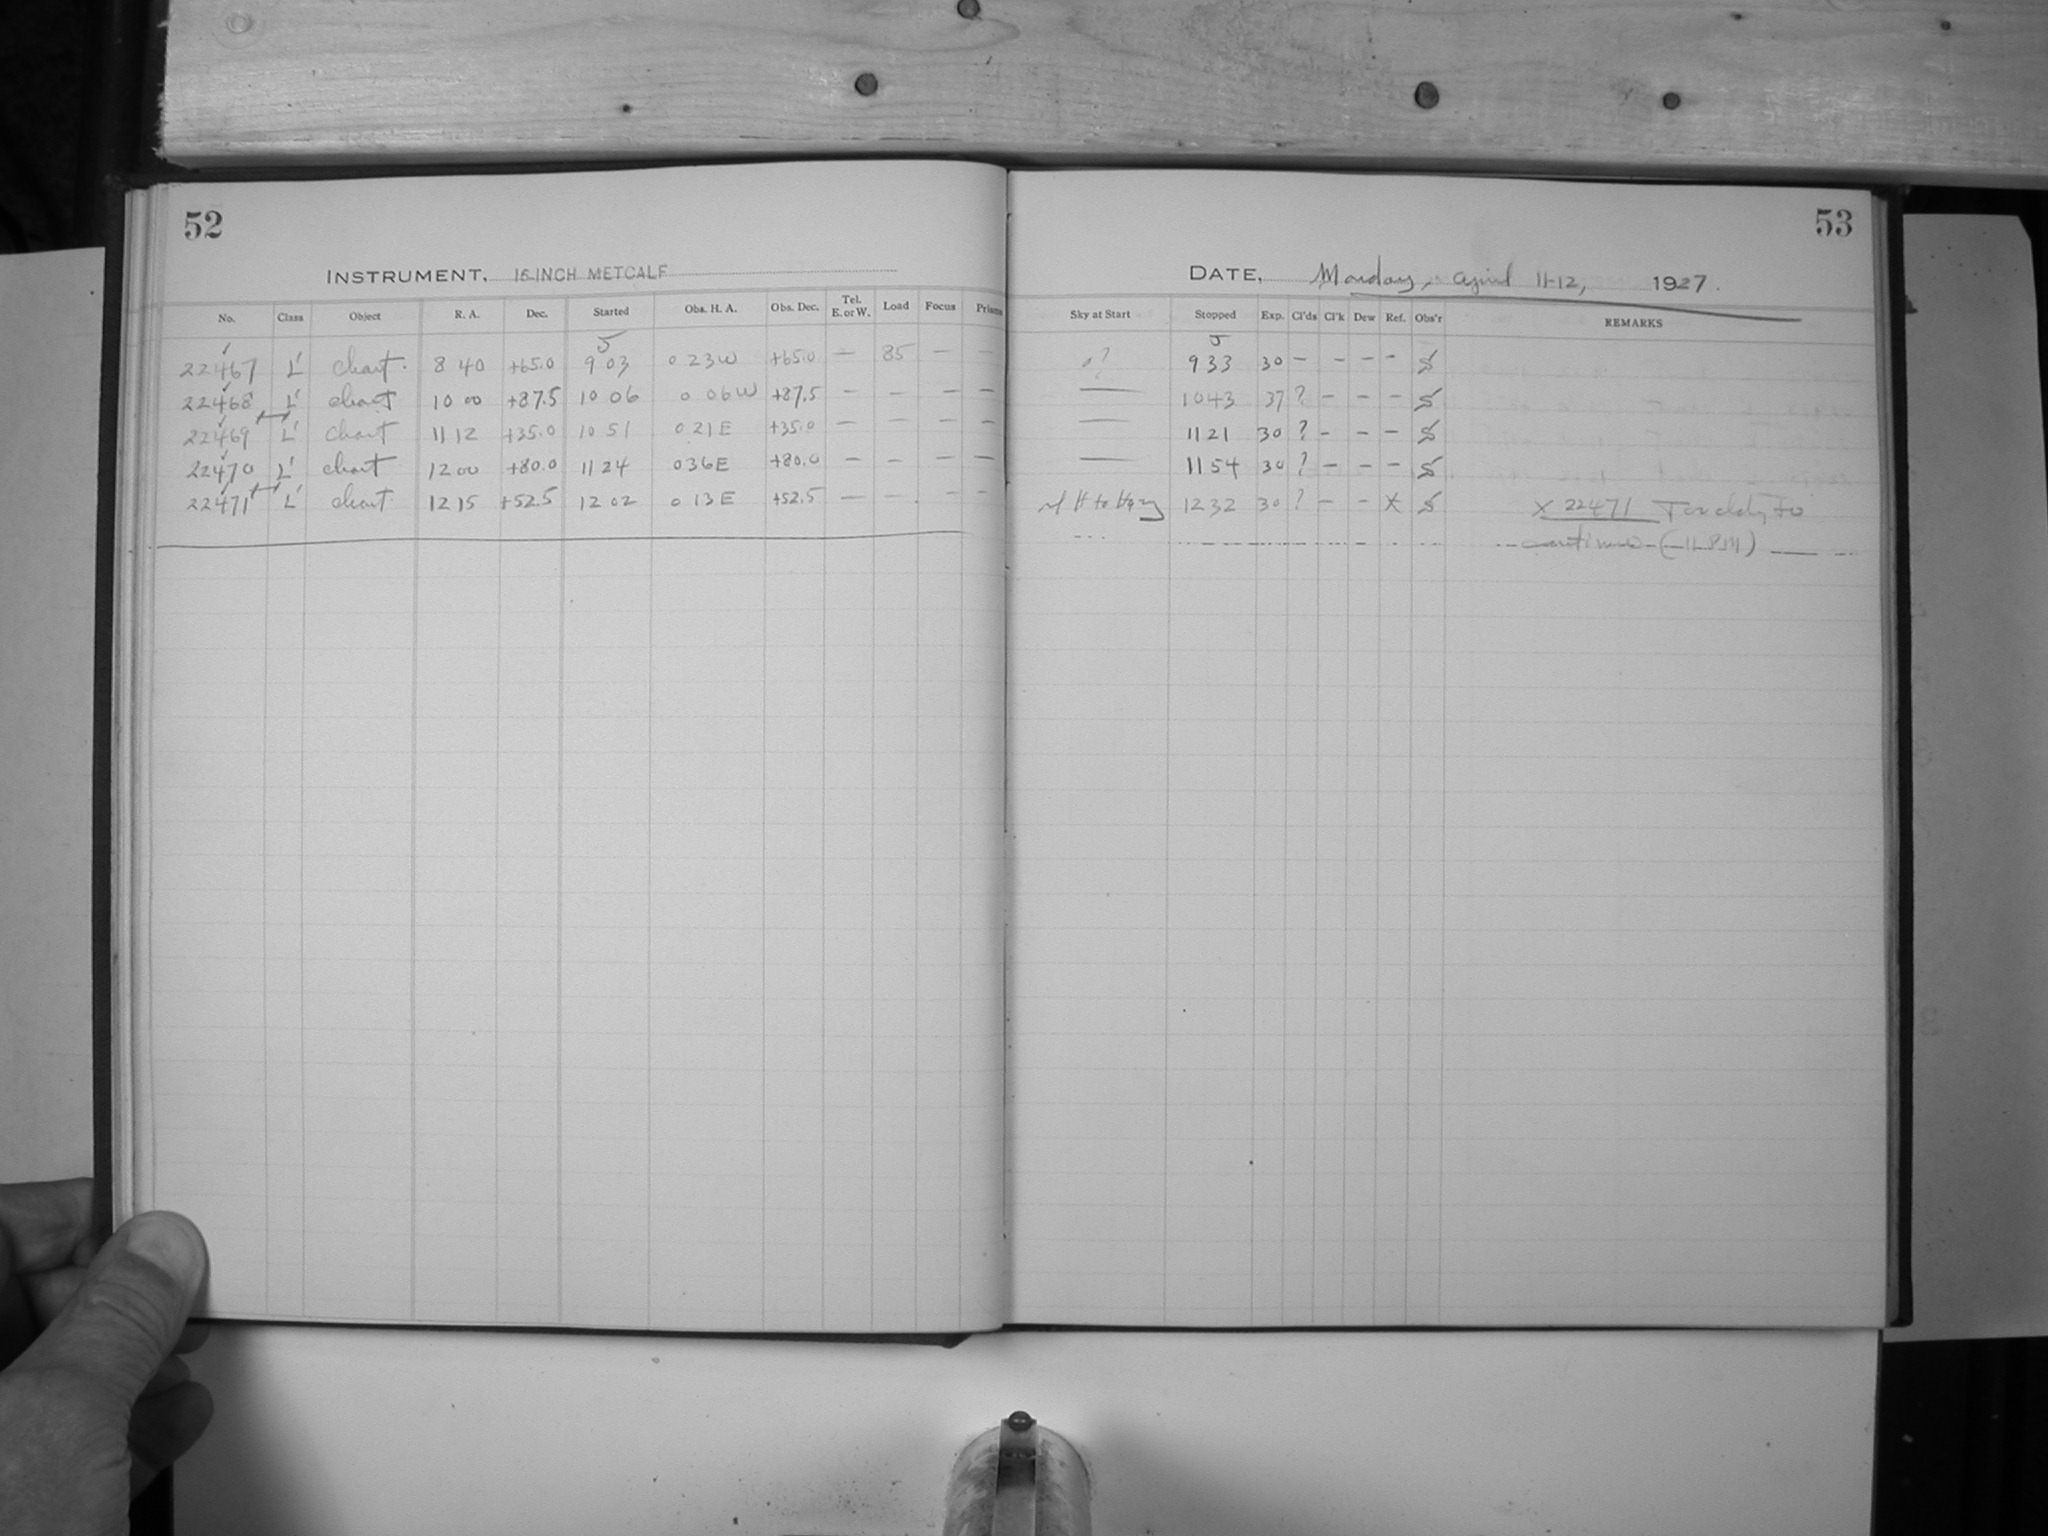 52
INSTRUMENT, 16-INCH METCALF
No. Class Object R. A. Dec. Started Obs. H. A. Obs. Dec. Tel. E. or W. Load Focus Prisms
22467 L' chart. 8 40 +65.0 9 03 0 23W +65.0 — 85 — —
22468 L' chart 10 00 +87.5 10 06 0 06W +87.5 — — — —
22469 L' chart 11 12 +35.0 10 51 0 21E +35.0 — — — —
22470 L' chart 12 00 +80.0 11 24 0 36E +80.0 — — — —
22471 L' chart 12 15 +52.5 12 02 0 13E +52.5 — — — —
53
DATE, Monday, April 11-12, 1927.
Sky at Start Stopped Exp. Cl'ds Cl'k Dew Ref. Obs'r REMARKS
0? 9 33 30 — — — — S
— 10 43 37 ? — — — S
— 11 21 30 ? — — — S
— 11 54 30 ? — — — S
12 32 30 ? — — X S X 22471 Too cldy to
continue (